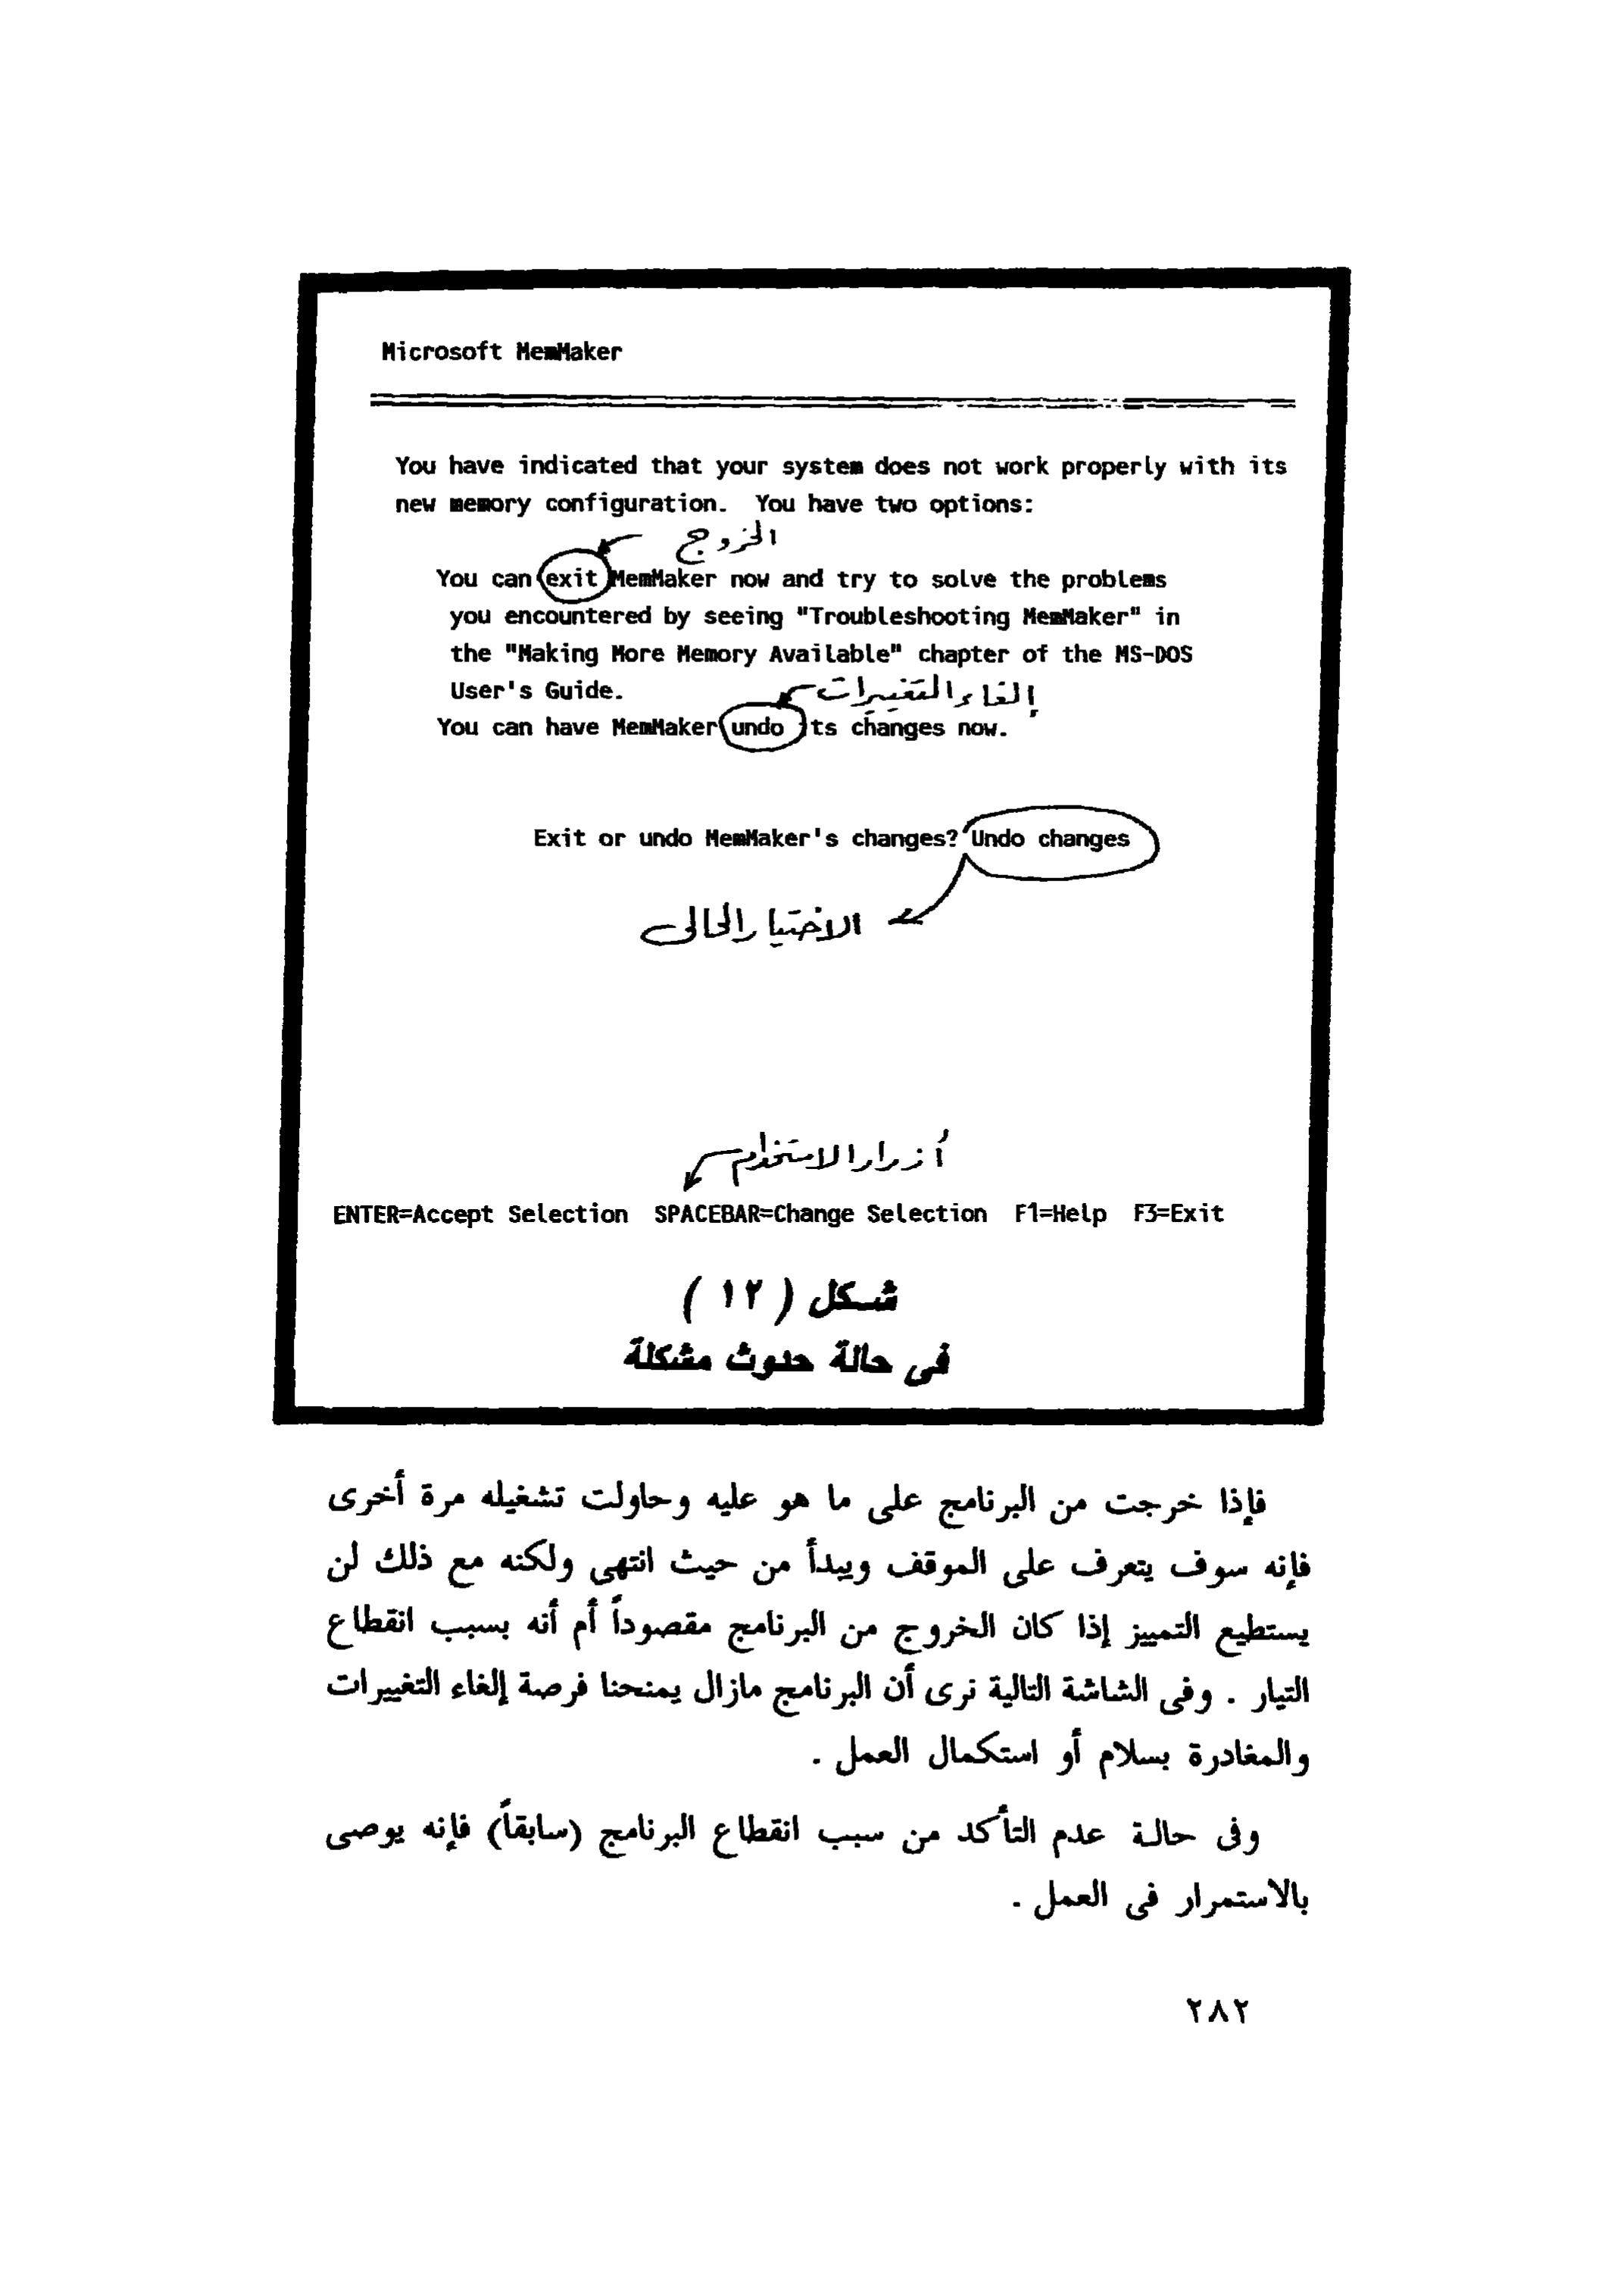 Microsoft MemMaker
You have indicated that your system does not work properly with its
new memory configuration. You have two options:
الخروج
You can exit MemMaker now and try to solve the problems
you encountered by seeing "Troubleshooting MemMaker" in
the "Making More Memory Available" chapter of the MS-DOS
User's Guide.
إلغاء التغييرات
You can have MemMaker undo its changes now.
Exit or undo MemMaker's changes? Undo changes
الاختيار الحالى
أزرار الاستخدام
ENTER=Accept Selection SPACEBAR=Change Selection F1=Help F3=Exit
شكل ( ١٢ )
فى حالة حدوث مشكلة
فإذا خرجت من البرنامج على ما هو عليه وحاولت تشغيله مرة أخرى
فإنه سوف يتعرف على الموقف ويبدأ من حيث انتهى ولكنه مع ذلك لن
يستطيع التمييز إذا كان الخروج من البرنامج مقصوداً أم أنه بسبب انقطاع
التيار . وفى الشاشة التالية نرى أن البرنامج مازال يمنحنا فرصة إلغاء التغييرات
والمغادرة بسلام أو استكمال العمل .
وفى حالة عدم التأكد من سبب انقطاع البرنامج (سابقاً) فإنه يوصى
بالاستمرار فى العمل .
٢٨٢